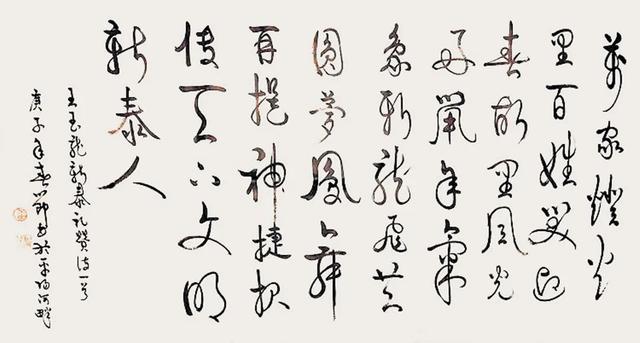 萬家燈火
里百姓笑迎
春故里風光
好鼠年氣
象新龍飛共
圓夢鳳舞
再提神捷報
傳天下文明
新泰人
王玉龍新泰礼贊詩一首
庚子年春節書於平陽河畔